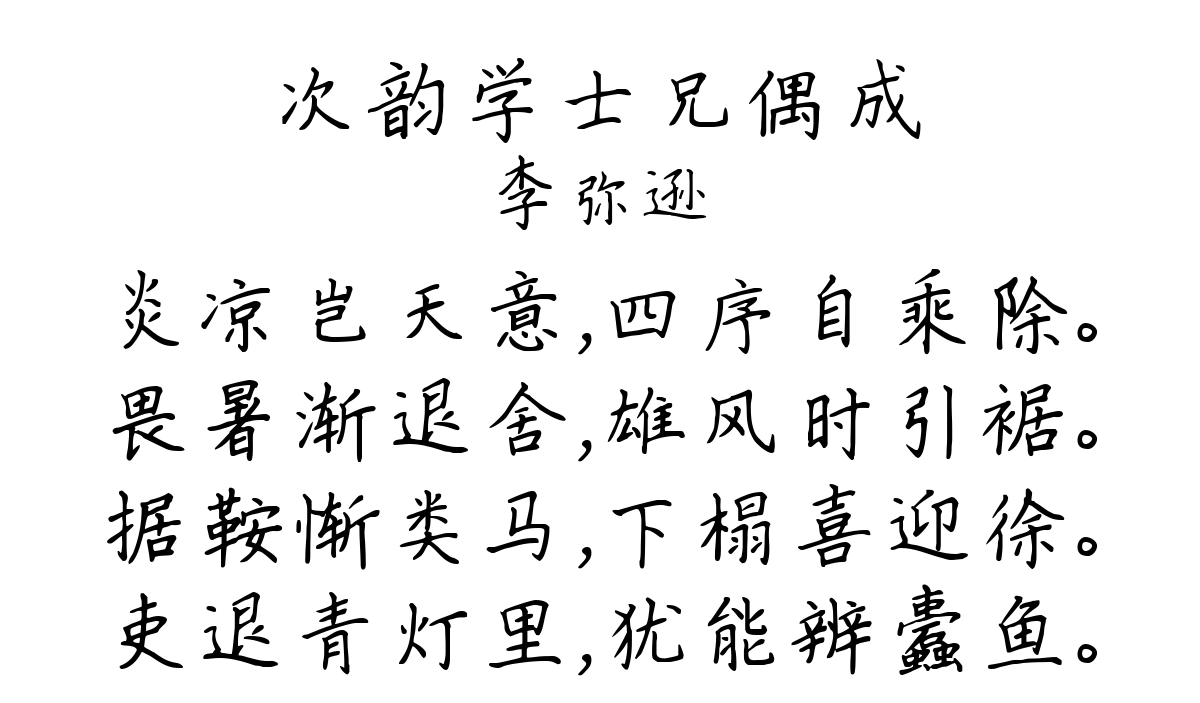 次韵学士兄偶成
李弥逊
炎凉岂天意,四序自乘除。
畏暑渐退舍,雄风时引裾。
据鞍惭类马,下榻喜迎徐。
吏退青灯里,犹能辨蠹鱼。